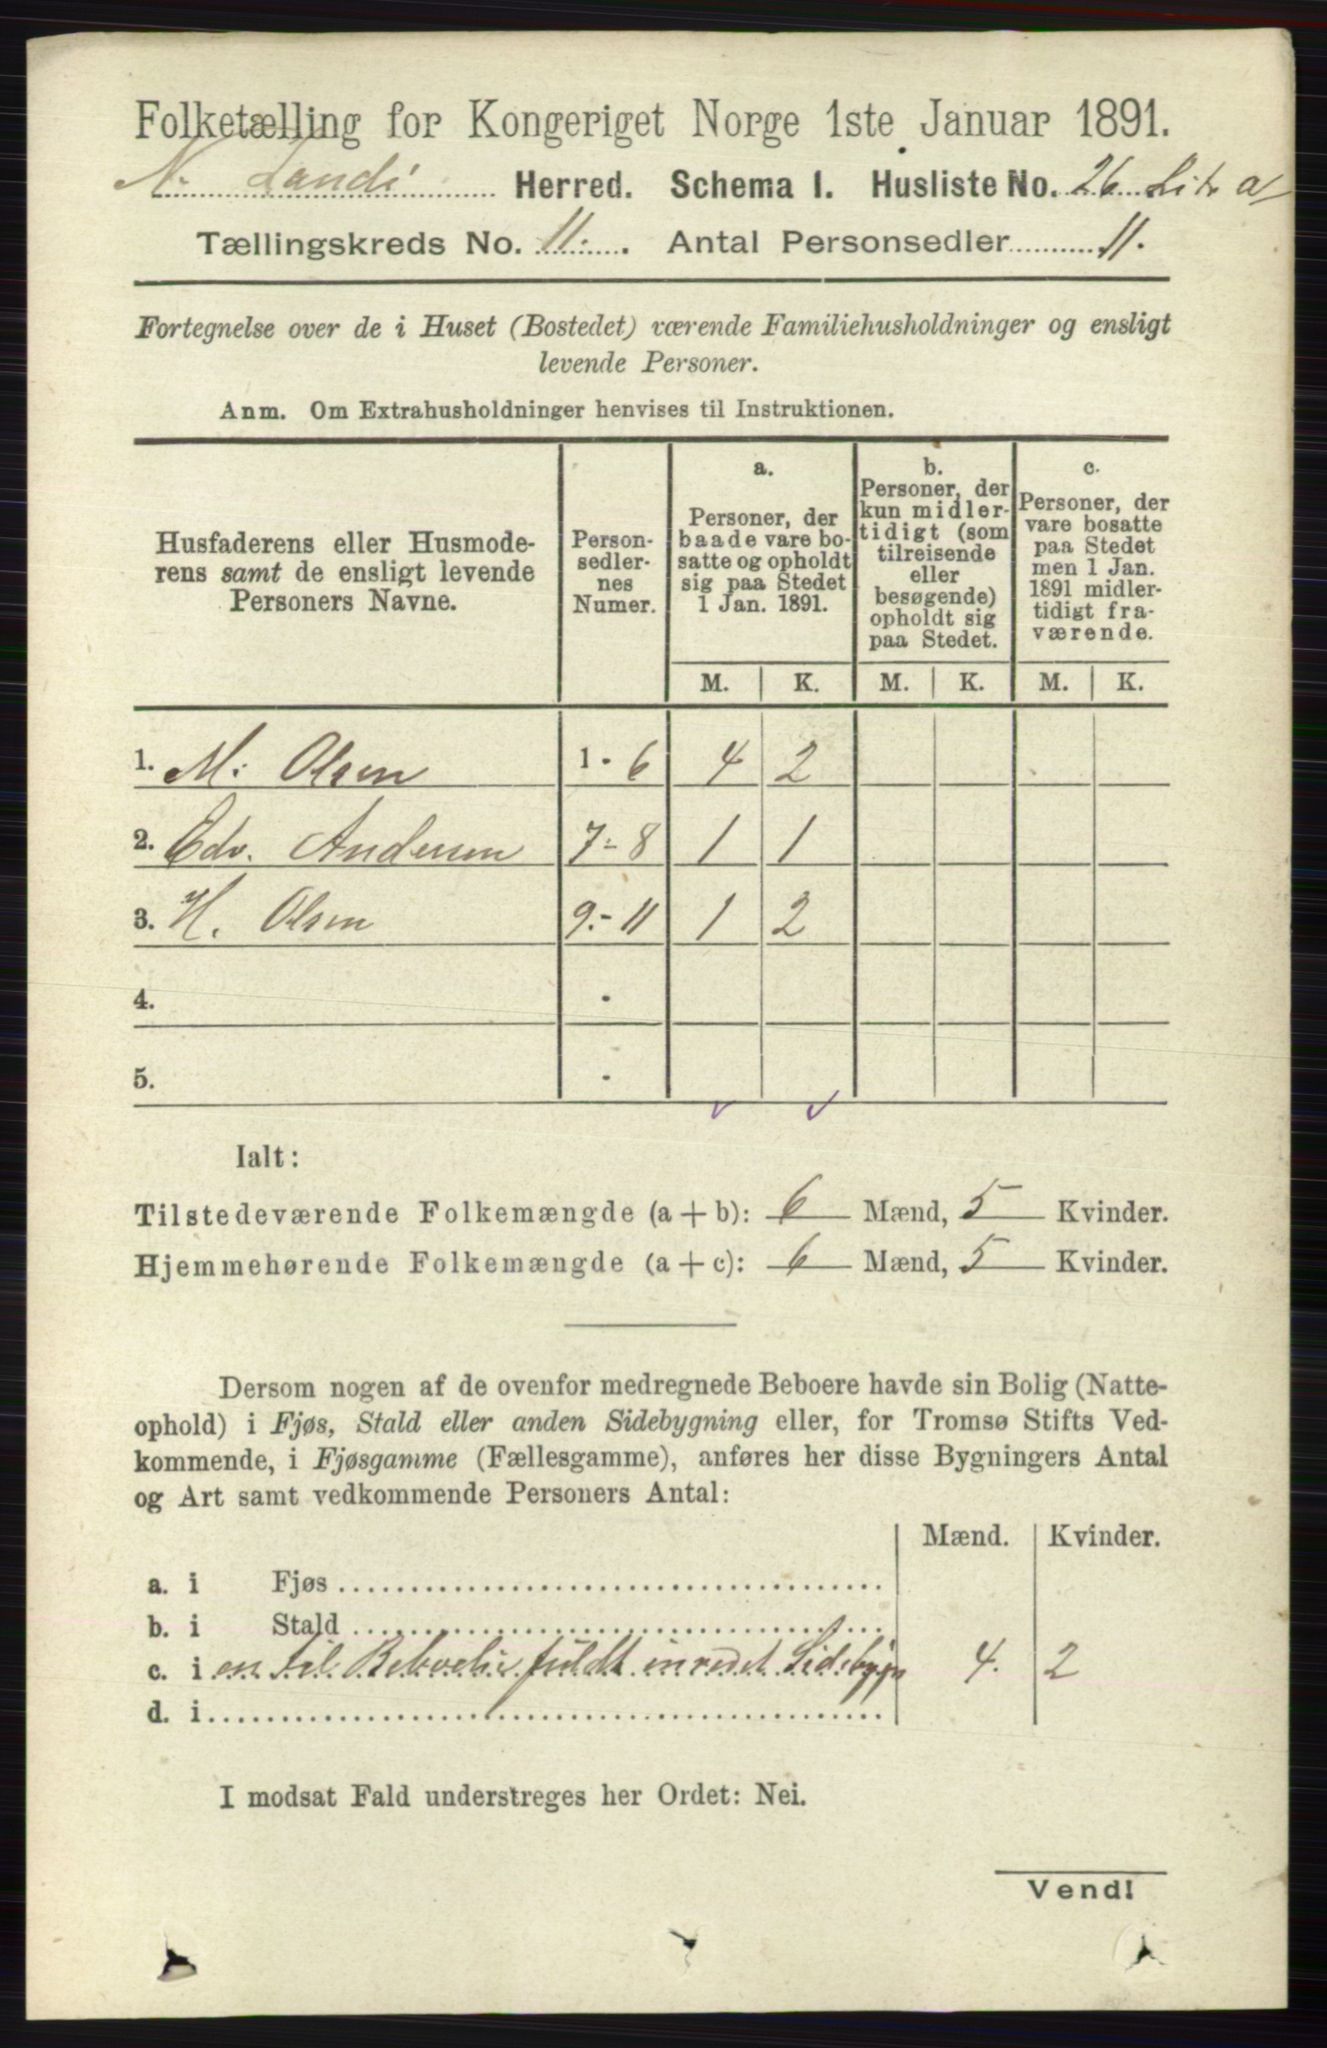 Folketælling for Kongeriget Norge 1ste Januar 1891.
N. Landi Herred. Schema I. Husliste No. 26 Litr a
Tællingskreds No. 11. Antal Personsedler 11.
Fortegnelse over de i Huset (Bostedet) værende Familiehusholdninger og ensligt
levende Personer.
Anm. Om Extrahusholdninger henvises til Instruktionen.
Husfaderens eller Husmode-
rens samt de ensligt levende
Personers Navne.
Person-
sedler-
nes
Numer.
a.
Personer, der
baade vare bo-
satte og opholdt
sig paa Stedet
1 Jan. 1891.
b.
Personer, der
kun midler-
tidigt (som
tilreisende
eller
besøgende)
opholdt sig
paa Stedet.
c.
Personer, der
vare bosatte
paa Stedet
men 1 Jan.
1891 midler-
tidigt fra-
værende.
M. K. M. K. M. K.
1. M. Olsen 1 - 6 4 2
2. Edv. Andersen 7 - 8 1 1
3. H. Olsen 9 - 11 1 2
4. -
5. -
Ialt:
Tilstedeværende Folkemængde (a + b): 6 Mænd, 5 Kvinder.
Hjemmehørende Folkemængde (a + c): 6 Mænd, 5 Kvinder.
Dersom nogen af de ovenfor medregnede Beboere havde sin Bolig (Natte-
ophold) i Fjøs, Stald eller anden Sidebygning eller, for Tromsø Stifts Ved-
kommende, i Fjøsgamme (Fællesgamme), anføres her disse Bygningers Antal
og Art samt vedkommende Personers Antal:
Mænd. Kvinder.
a. i Fjøs
b. i Stald
c. i en til Beboelse fuldt inredet Sidebygn 4. 2
d. i
I modsat Fald understreges her Ordet: Nei.
Vend!